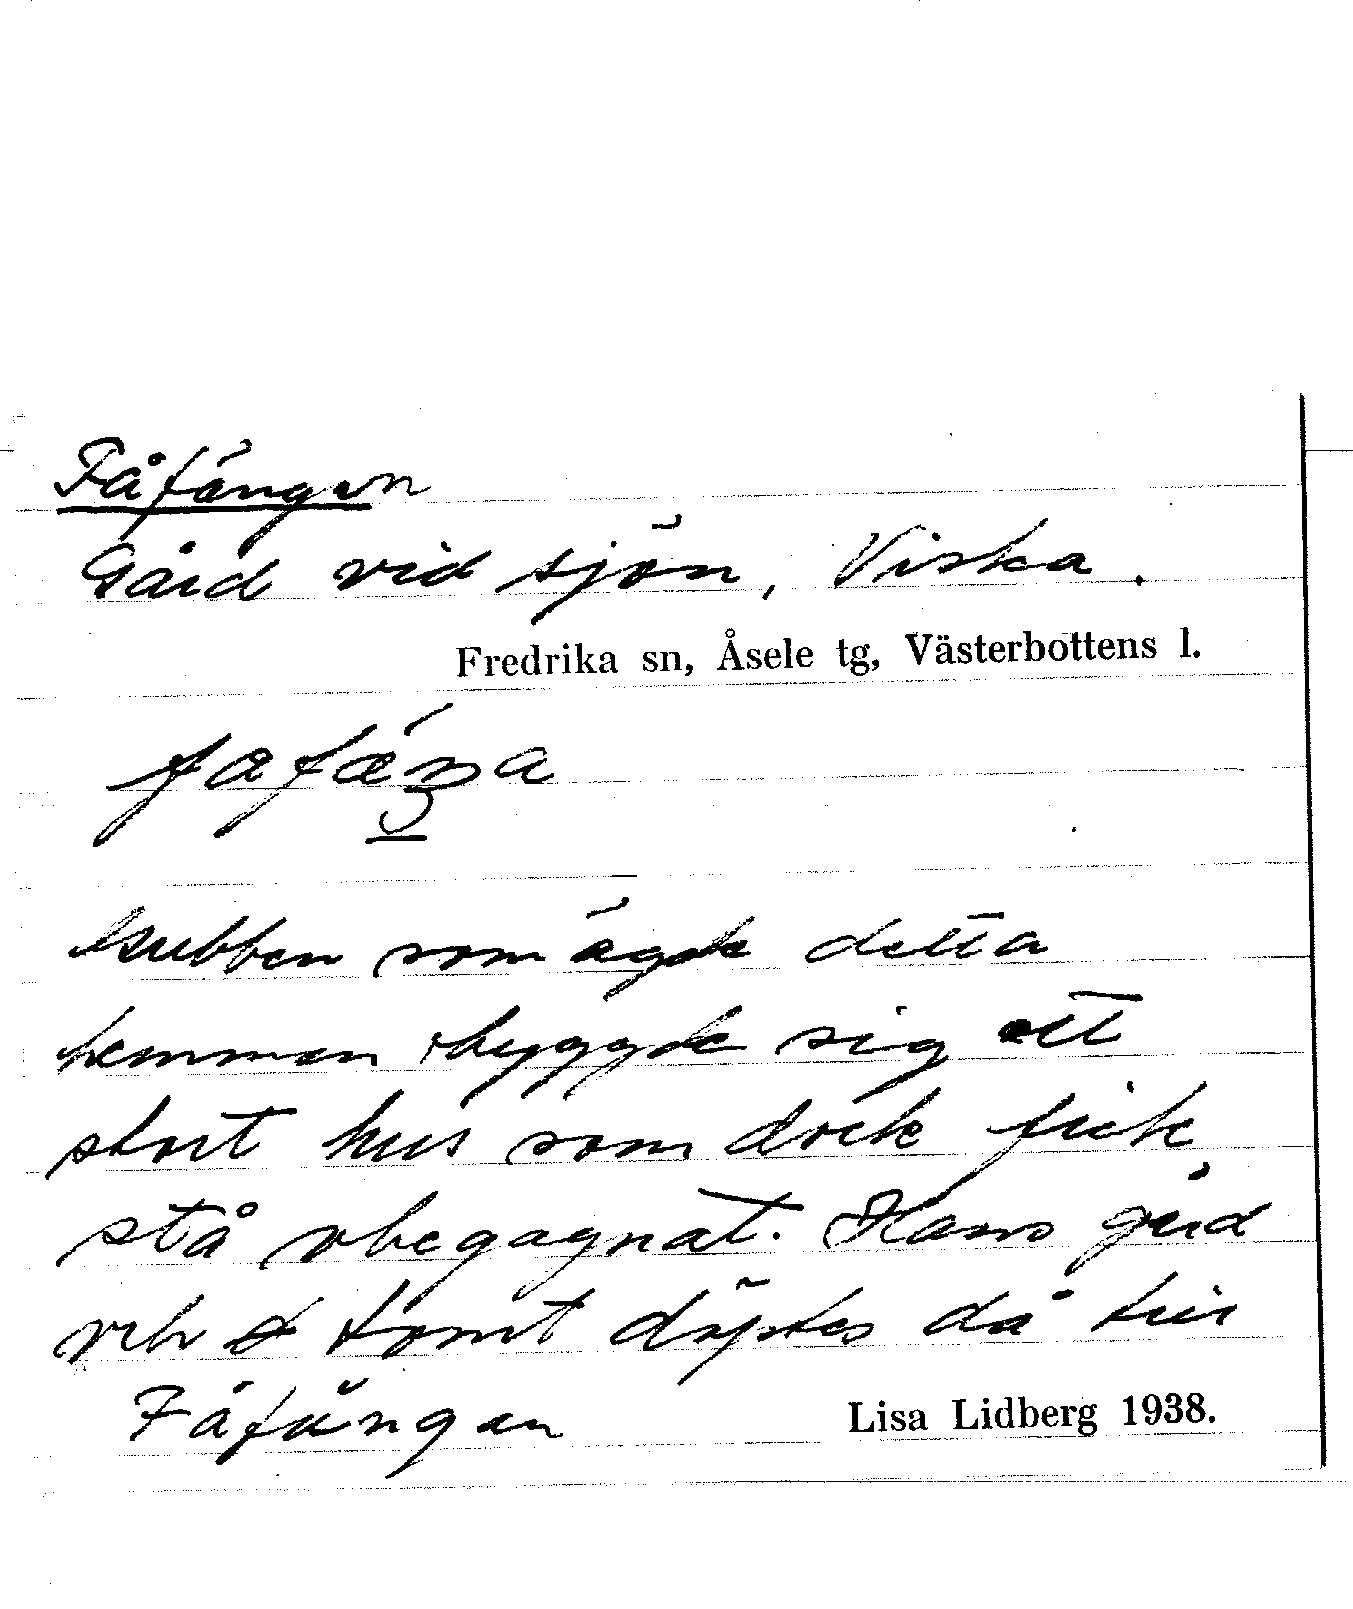 Fåfängan
Gård vid sjön, Viska.
Fredrika sn, Åsele tg, Västerbottens l.
Gubben som ägde detta
hemman byggde sig ett
stort hus som dock fick
stå obegagnat. Hans gård
och tomt döptes då till
Fåfängan
Lisa Lidberg 1938.